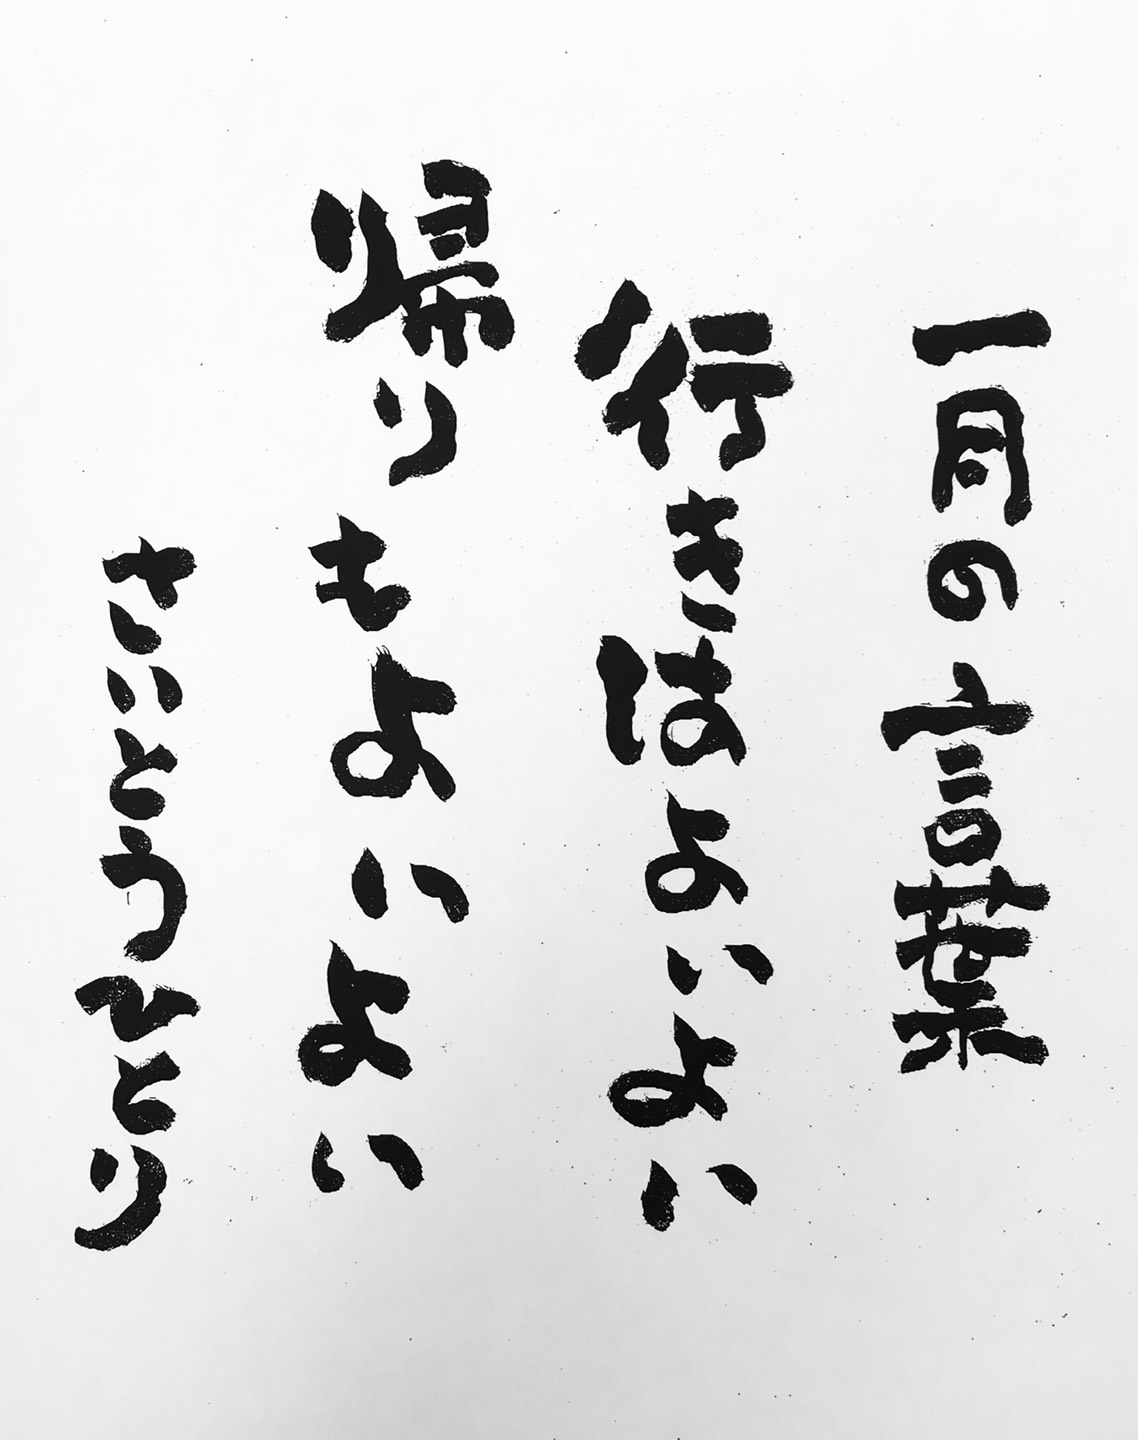 一月の言葉
行きはよいよい
帰りもよいよい
さいとうひとり